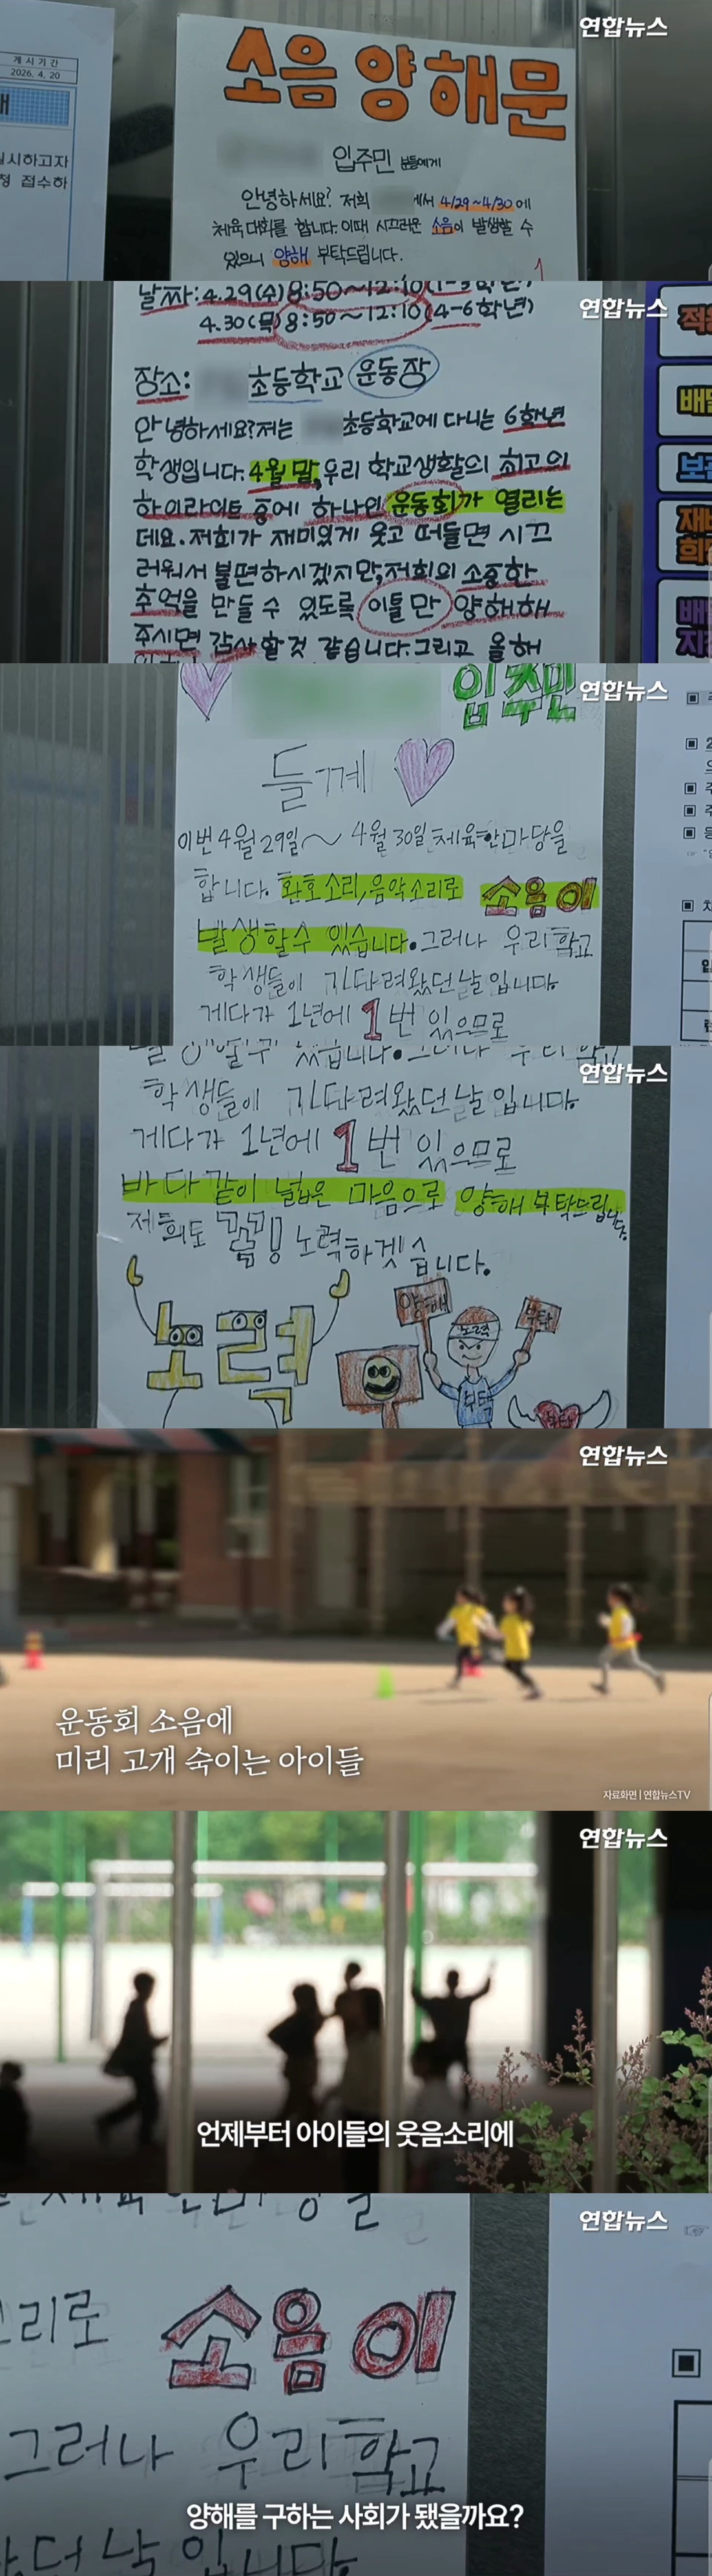 연합뉴스
게시기간
2026. 4. 20
실시하고자
청 접수하
소음 양해문
입주민 분들에게
안녕하세요? 저희 에서 4/29~4/30에
체육대회를 합니다. 이때 시끄러운 소음이 발생할 수
있으니 양해 부탁드립니다.
연합뉴스
날짜:4.29(수)8:50~12:10(1-3학년)
4.30(목)8:50~12:10(4-6학년)
장소: 초등학교 운동장
안녕하세요?저는 초등학교에 다니는 6학년
학생입니다.4월 말,우리 학교생활의 최고의
하이라이트 중에 하나인 운동회가 열리는
데요. 저희가 재미있게 웃고 떠들면 시끄
러워서 불편하시겠지만,저희의 소중한
추억을 만들 수 있도록 이틀만 양해해
주시면 감사할 것 같습니다.그리고 올해
연합뉴스
입주민
들께
이번 4월 29일~4월 30일 체육한마당을
합니다. 환호소리,음악소리로 소음이
발생할 수 있습니다.그러나 우리학교
학생들이 기다려왔던 날입니다
게다가 1년에 1번 있으므로
연합뉴스
학생들이 기다려왔던 날입니다
게다가 1년에 1번 있으므로
바다같이 넓은 마음으로 양해 부탁드립니다.
저희도 꼭꼭! 노력하겠습니다.
노력
양해
부탁
노력
부탁
연합뉴스
운동회 소음에
미리 고개 숙이는 아이들
자료화면 | 연합뉴스TV
연합뉴스
언제부터 아이들의 웃음소리에
연합뉴스
소리로 소음이
그러나 우리학교
양해를 구하는 사회가 됐을까요?